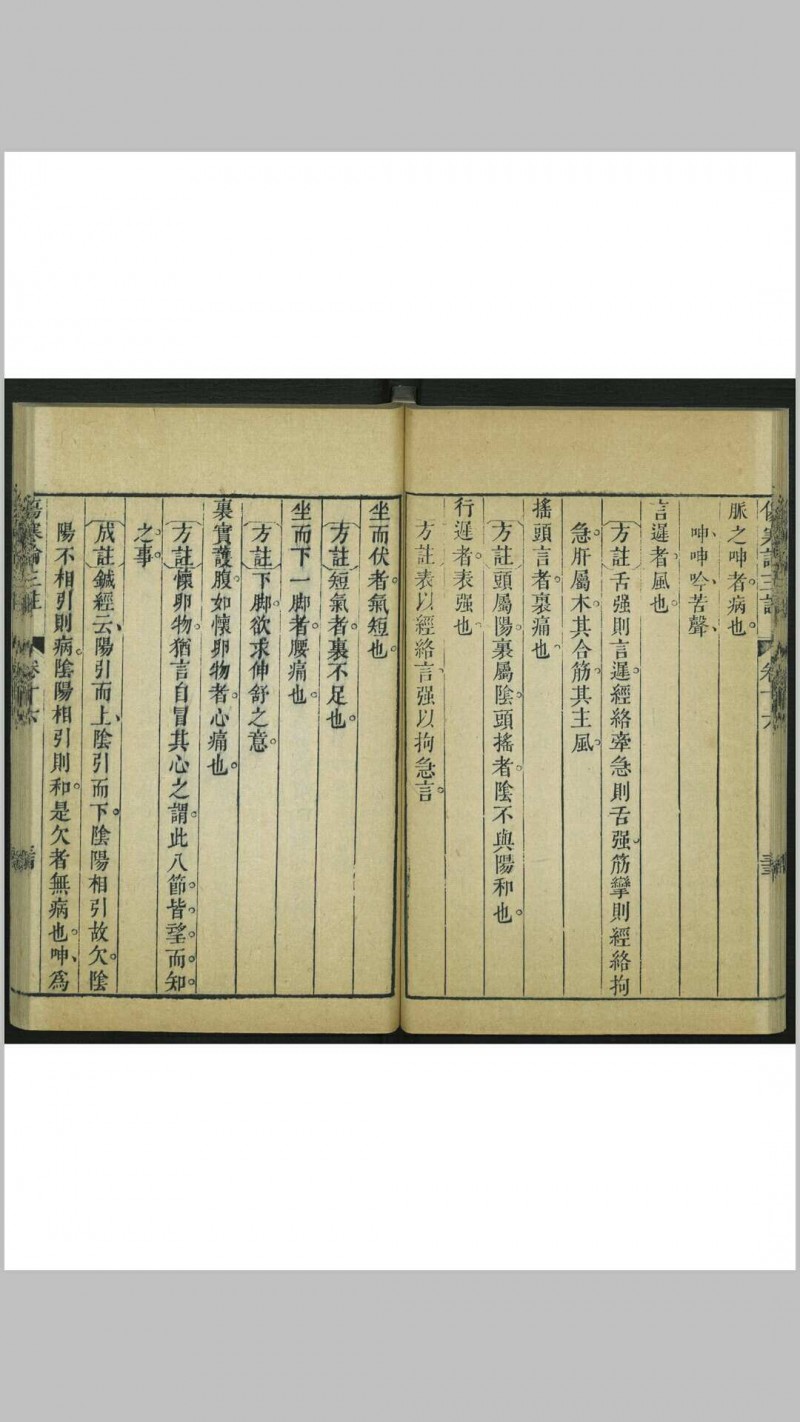 脈之呻者病也。
呻、呻吟苦聲、
言遲者風也。
方註舌强則言遲經絡牽急則舌强筋攣則經絡拘
急肝屬木其合筋其主風。
搖頭言者裏痛也。
方註頭屬陽裏屬陰頭搖者陰不與陽和也。
行遲者表强也
方註表以經絡言强以拘急言。
坐而伏者氣短也。
方註短氣者裏不足也。
坐而下一脚者腰痛也。
方註下脚欲求伸舒之意。
裏實護腹如懷卵物者心痛也。
方註懷卵物猶言自冒其心之謂此八節皆望而知
之事。
成註鍼經云陽引而上、陰引而下陰陽相引故欠陰
陽不相引則病陰陽相引則和是欠者無病也呻、爲
傷寒論三註 卷十六